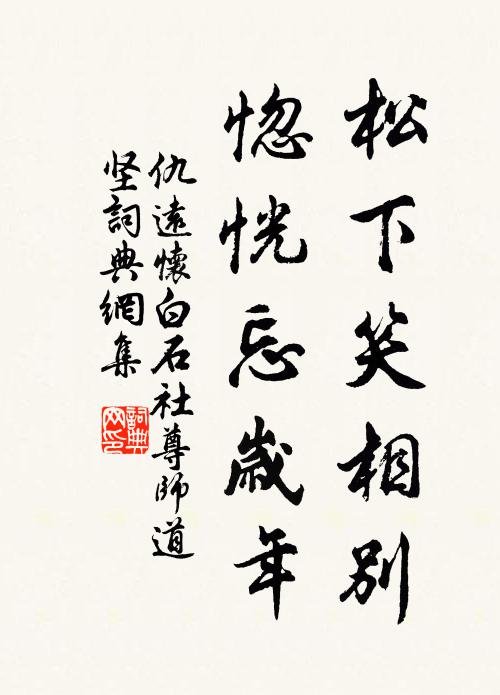 松下笑相別
惚恍忘歲年
仇遠懷白石社尊師道
坚詞典網集
詞典网印